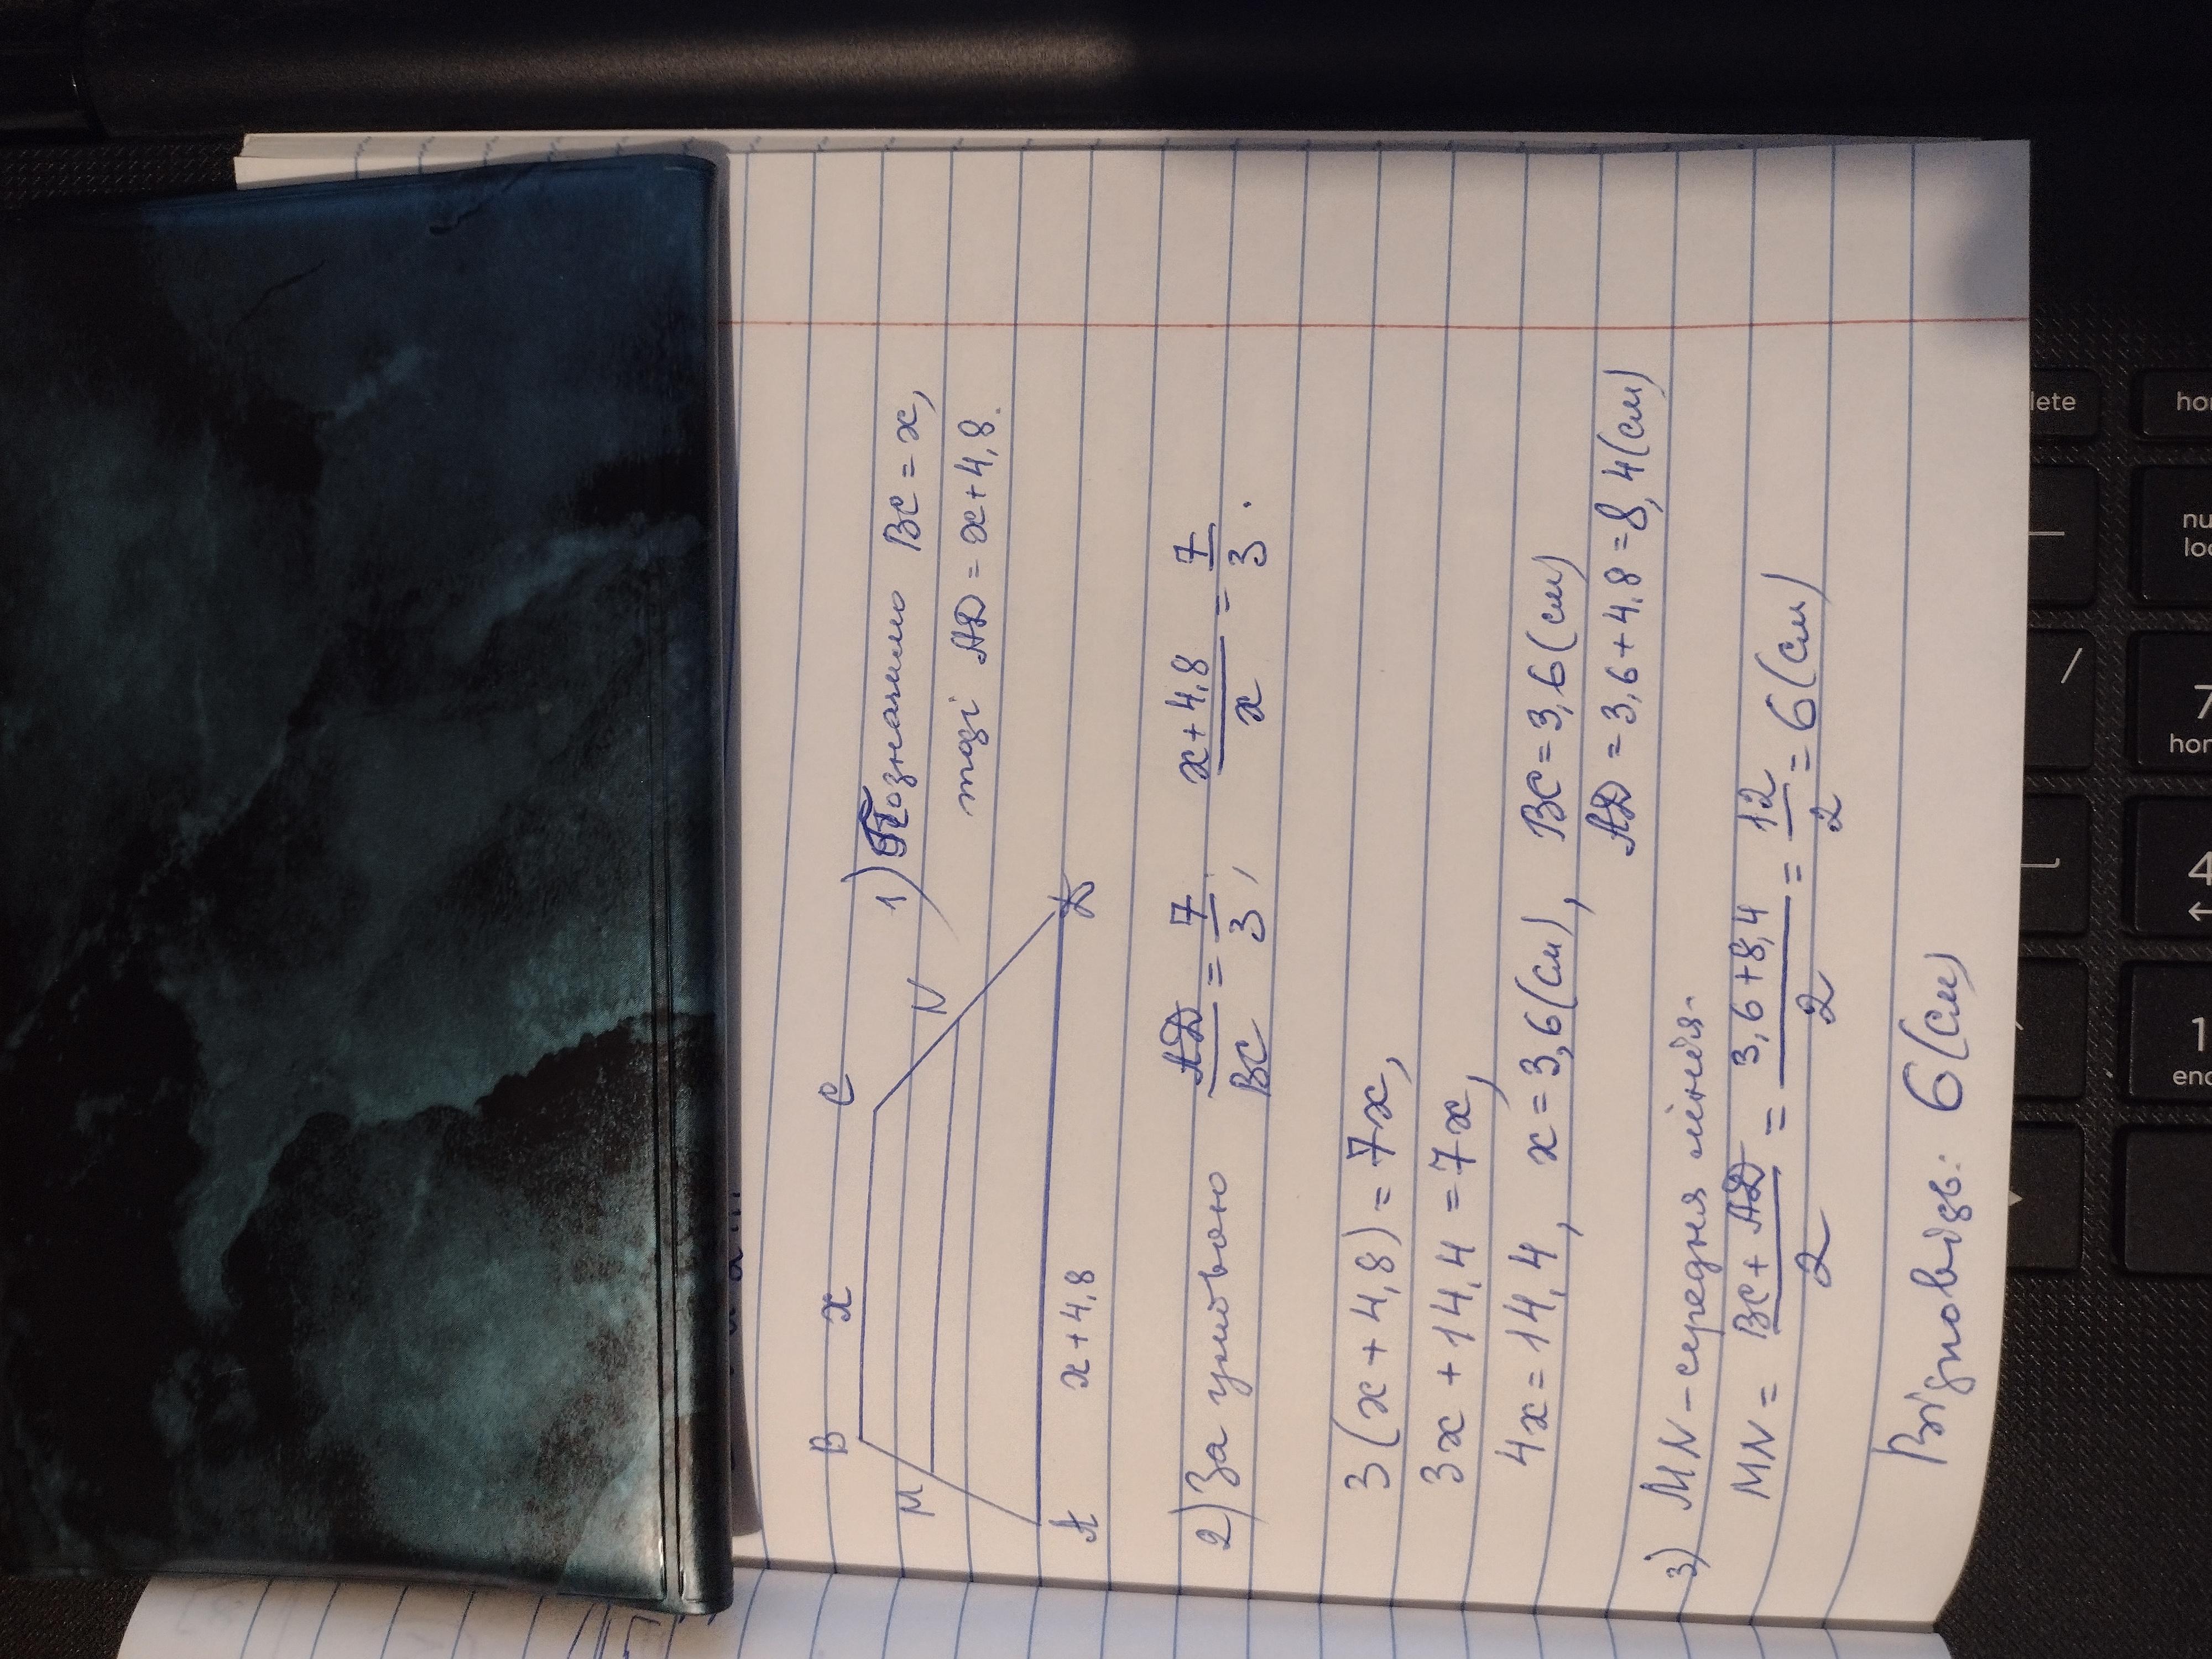 B x C
M N
A x+4,8 D
1) Позначимо BC = x,
тоді AD = x+4,8.
2) За умовою AD/BC = 7/3, x+4,8/x = 7/3.
3(x+4,8) = 7x,
3x+14,4 = 7x,
4x = 14,4, x = 3,6(см), BC = 3,6(см)
AD = 3,6+4,8 = 8,4(см)
3) MN – середня лінія.
MN = BC+AD/2 = 3,6+8,4/2 = 12/2 = 6(см)
Відповідь: 6(см)
lete
hor
/
7
hor
4
←
1
end